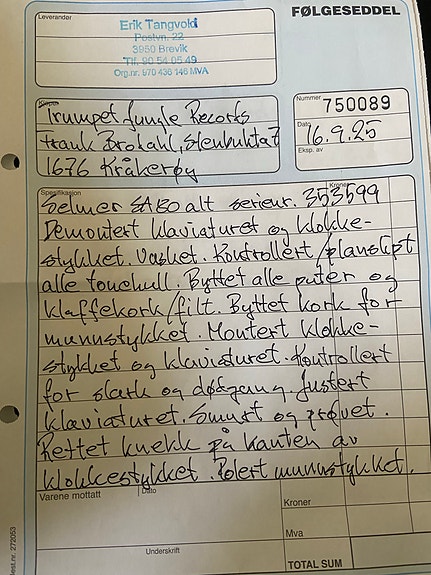 FØLGESEDDEL
Leverandør
Erik Tangvold
Postvn. 22
3950 Brevik
Tlf. 90 54 05 49
Org.nr. 970 436 146 MVA
Kjøper
Trumpet Jungle Records
Frank Brodahl, Stenbukta 7
1676 Kråkerøy
Nummer 750089
Dato
16.9.25
Eksp. av
Spesifikasjon
Kroner
Selmer SA80 alt serienr. 353599
Demontert klaviaturet og klokke-
stykket. Vasket. Kontrollert/planslipt
alle tonehull. Byttet alle puter og
klaffekork/filt. Byttet kork for
munnstykket. Montert klokke-
stykket og klaviaturet. Kontrollert
for slark og dødgang. Justert
klaviaturet. Smurt og prøvet.
Rettet knekk på kanten av
klokkestykket. Polert munnstykket.
Varene mottatt
Dato
Kroner
Mva
Underskrift
TOTAL SUM
Best.nr. 272053